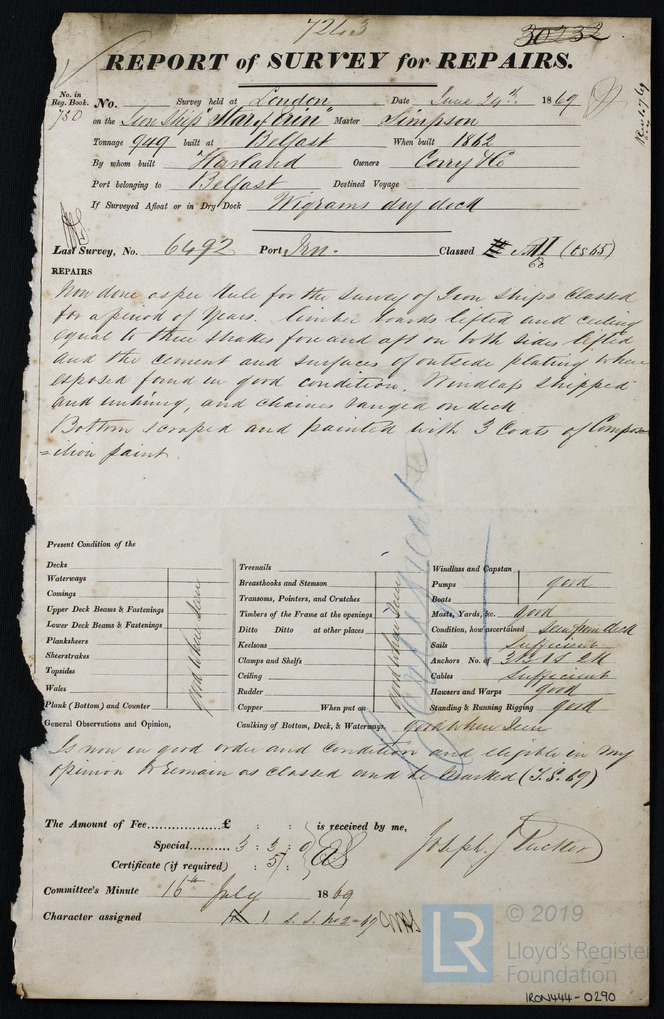 7243
30232
REPORT of SURVEY for REPAIRS.
No. in Reg. Book. No. Survey held at London Date June 24th 1869
750 on the Iron Ship "Star of Erin" Master Simpson
Tonnage 949 built at Belfast When built 1862
By whom built Harland Owners Corry & Co
Port belonging to Belfast Destined Voyage
If Surveyed Afloat or in Dry Dock Wigrams dry dock
Last Survey, No. 6492 Port Lon. Classed A1 (65)
68
REPAIRS
Now done as per Rule for the Survey of Iron Ships Classed
for a period of Years. Limber boards lifted and ceiling
equal to three strakes fore and aft on both sides lifted
and the cement and surfaces of outside plating where
exposed found in good condition. Windlass shipped
and unhung, and chains ranged on deck
Bottom scraped and painted with 3 Coats of Compos
=ition paint.
Present Condition of the
Decks
Waterways
Comings
Upper Deck Beams & Fastenings
Lower Deck Beams & Fastenings
Planksheers
Sheerstrakes
Topsides
Wales
Plank (Bottom) and Counter
good where seen
Treenails
Breasthooks and Stemson
Transoms, Pointers, and Crutches
Timbers of the Frame at the openings
Ditto Ditto at other places
Keelsons
Clamps and Shelfs
Ceiling
Rudder
Copper When put on
good where seen
Caulking of Bottom, Deck, & Waterways good where seen
Windlass and Capstan
Pumps good
Boats
Masts, Yards, &c. good
Condition, how ascertained Seen from deck
Sails Sufficient
Anchors No. of 3 B 1 S 2 K
Cables Sufficient
Hawsers and Warps good
Standing & Running Rigging good
General Observations and Opinion,
Is now in good order and condition and eligible in my
opinion to remain as classed and be marked (T.S. 69)
The Amount of Fee............... £ : : is received by me,
Special......... 3 : 3 : 0
Certificate (if required) : 5 :
Joseph J Tucker
Committee's Minute 16th July 1869
Character assigned A 1 S.S. No 2-69
LR
© 2019
Lloyd's Register
Foundation
IRON444-0290